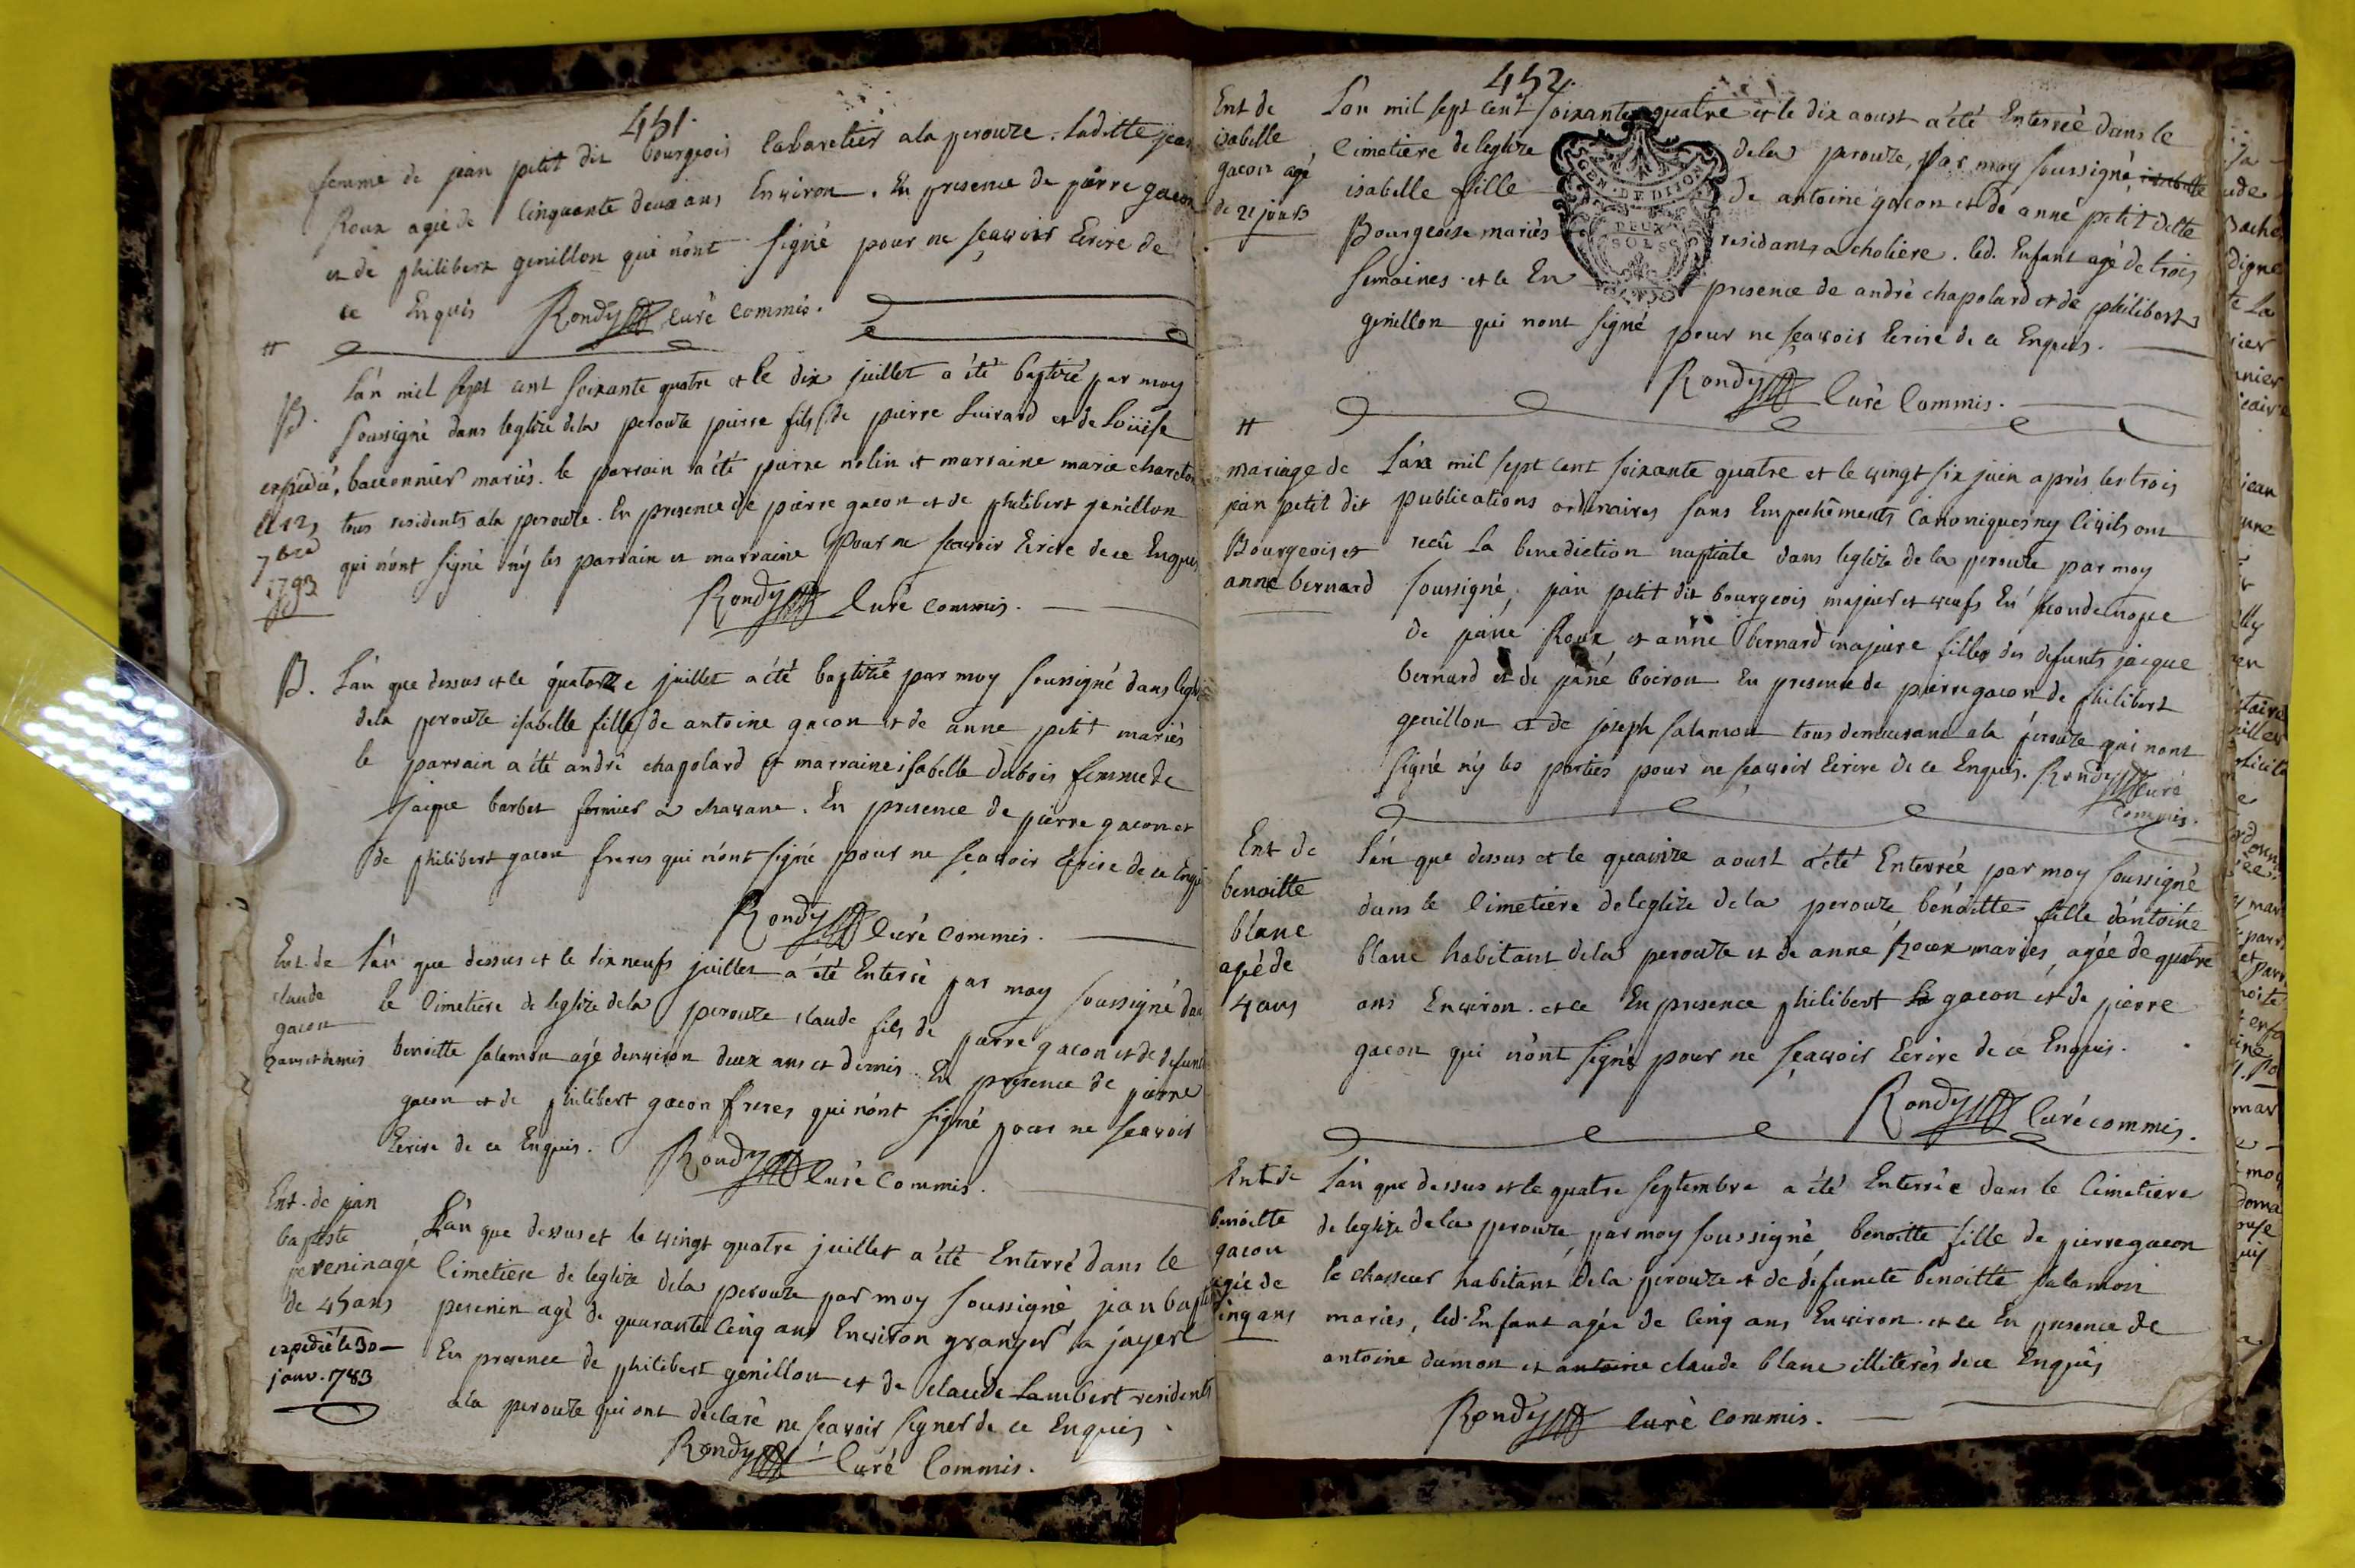 451.
femme de jean petit dit bourgeois Cabaretier a la perouze. laditte jean
Roux agée de Cinquante deux ans Environ. En presence de pierre gacon
et de philibert genillon qui n'ont signé pour ne sçavoir Ecrire de
ce Enquis Rondy Curé Commis.
B. L'an mil sept cent soixante quatre et le dix juillet a été baptizé par moy
soussigné dans leglize dela perouze pierre fils de pierre Luirard et de Loüise
expedié, baconnier mariés. le parrain a été pierre nolin et marraine marie chareton
le 12, tous residents ala perouze. En presence de pierre gacon et de philibert genillon
7bre qui n'ont signé n'y les parrain et marraine pour ne sçavoir Ecrire de ce Enquis
1793
Rondy Curé Commis.
B. L'an que dessus et le quatorze juillet a été baptizée par moy soussigné dans leglize
dela perouze isabelle fille de antoine gacon et de anne petit mariés
le parrain a été andré chapolard et marraine isabelle dubois femme de
jacque barbet fermier a chavane. En presence de pierre gacon et
de philibert gacon freres qui n'ont signé pour ne sçavoir Ecrire de ce Enquis
Rondy Curé Commis.
Ent. de
claude
gacon
2 ans et demis
L'an que dessus et le dix neufs juillet a été Enterré par moy soussigné dans
le Cimetiere de leglize dela perouze claude fils de pierre gacon et de defunte
benoitte salamon agé denviron deux ans et demis. En presence de pierre
gacon et de philibert gacon freres qui n'ont signé pour ne sçavoir
Ecrire de ce Enquis. Rondy Curé Commis.
Ent. de jean
baptiste
pereninagé
de 45 ans
expedié le 30
janv. 1783
L'an que dessus et le vingt quatre juillet a été Enterré dans le
Cimetiere de leglize dela perouze par moy soussigné, jean baptiste
perenin agé de quarante Cinq ans Environ granger a jayere
En presence de philibert genillon et de claude Lambert residents
ala perouze qui ont declaré ne sçavoir signer de ce Enquis.
Rondy Curé Commis.
452.
Ent de
isabelle
gacon agé
de 21 jours
L'an mil sept cent soixante quatre et le dix aoust a été Enterrée dans le
Cimetiere de leglize dela perouze, par moy soussigné isabelle
isabelle fille de antoine gacon et de anne petit ditte
Bourgeoise mariés residants a choliere. led. Enfant agé de trois
semaines. et ce En presence de andré chapolard et de philibert
genillon qui nont signé pour ne sçavoir Ecrire de ce Enquis.
GEN. DE DIJON
DEUX
SOLS
Rondy Curé Commis.
mariage de
jean petit dit
Bourgeois et
anne bernard
L'an mil sept cent soixante quatre et le vingt six juin après les trois
publications ordinaires sans Empechêments Canoniques ny Civils ont
recû La benediction nuptiale dans leglize de la perouze par moy
soussigné, jean petit dit bourgeois majeur et veufs En seconde nopce
de jeane Roux, et anne bernard majeure filles des defunts jacque
bernard et de jane boiron En presence de pierre gacon de philibert
genillon et de joseph salamon tous demeurant ala perouze qui nont
signé n'y les parties pour ne sçavoir Ecrire de ce Enquis. Rondy Curé
Commis.
Ent de
benoitte
blanc
agé de
4 ans
L'an que dessus et le quainze aoust a été Enterrée par moy soussigné
dans le Cimetiere de leglize dela perouze bénoitte fille d'antoine
blanc habitant dela perouze et de anne Roux mariés, agée de quatre
ans Environ. et ce En presence philibert gacon et de pierre
gacon qui n'ont signé pour ne sçavoir Ecrire de ce Enquis.
Rondy Curé commis.
Ent de
benoitte
gacon
agée de
cinq ans
L'an que dessus et le quatre septembre a été Enterrée dans le Cimetiere
de leglize dela perouze, par moy soussigné, benoitte fille de pierre gacon
le chasseur habitant dela perouze et de defuncte benoitte salamon
mariés, led. Enfant agée de Cinq ans Environ. et ce En presence de
antoine dumon et antoine claude blanc illiterés de ce Enquis
Rondy Curé Commis.